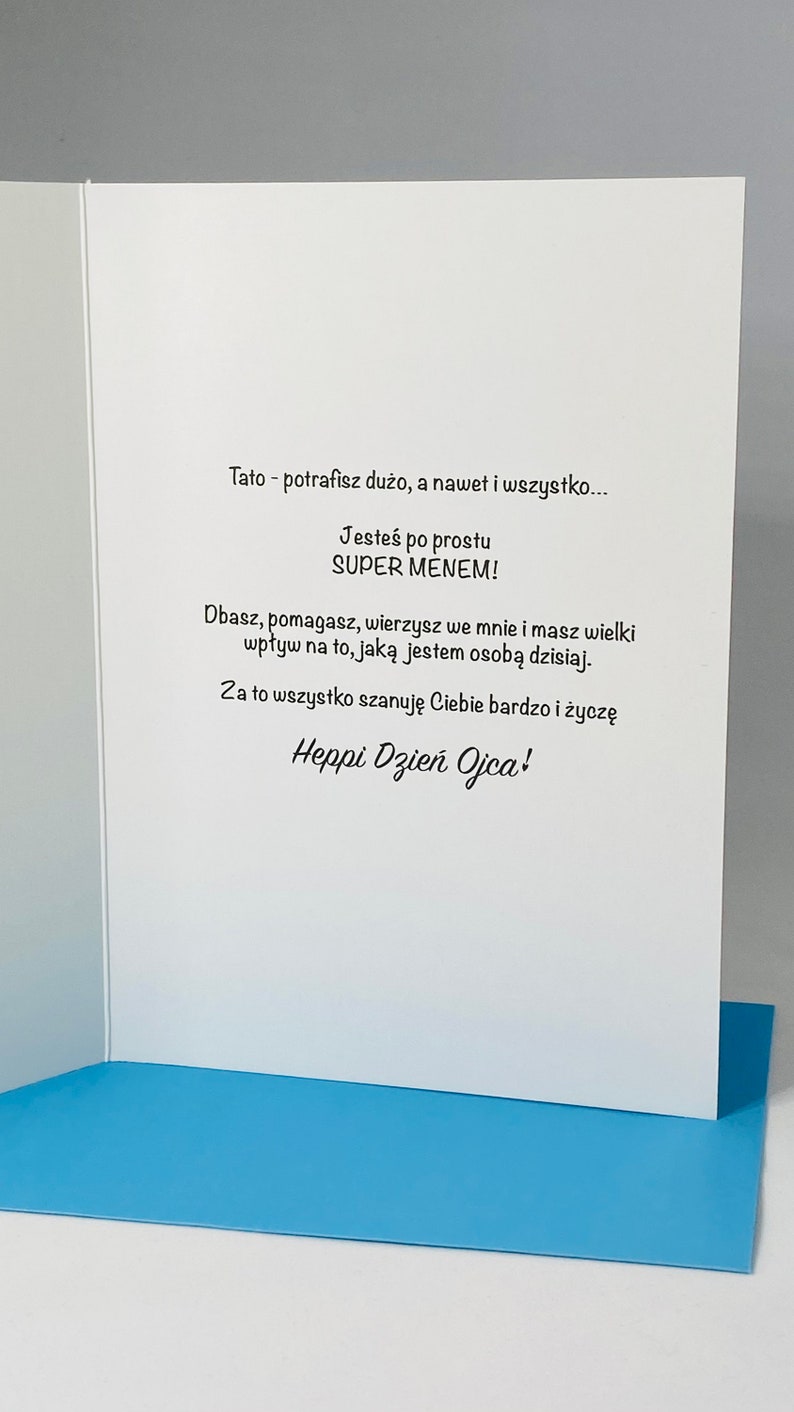 Tato - potrafisz dużo, a nawet i wszystko...
Jesteś po prostu
SUPER MENEM!
Dbasz, pomagasz, wierzysz we mnie i masz wielki
wpływ na to, jaką jestem osobą dzisiaj.
Za to wszystko szanuję Ciebie bardzo i życzę
Heppi Dzień Ojca!